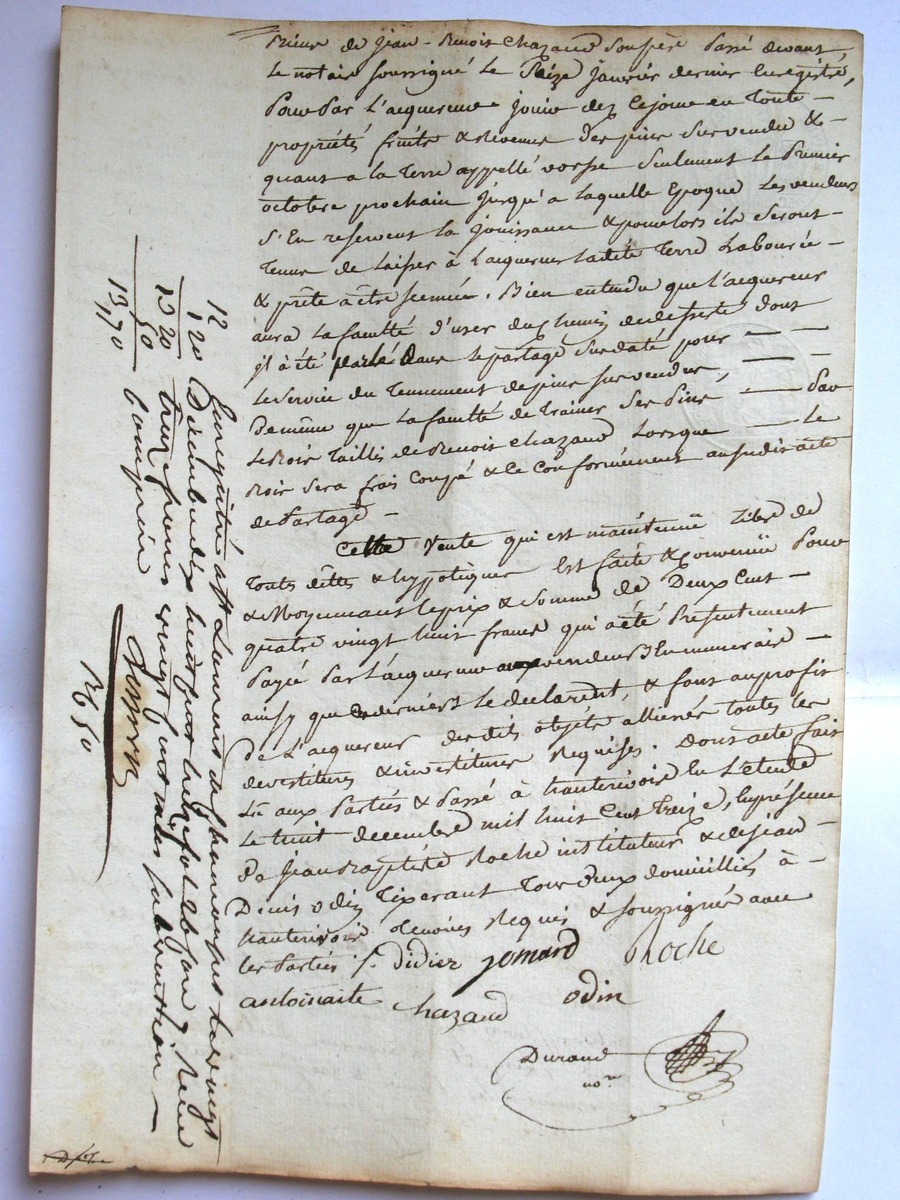 de Jean-Benoit Chazaud son père Passé devant,
Le notaire soussigné Le Seize Janvier dernier Enregistré,
Pour Par L'acquereur jouir dez Cejour en Toute
propriétés fruits & Revenus Des pins Survendu &
quant a la Terre appellé vorpe Seulement Le Premier
octobre prochain jusqu'a Laquelle Epoque Les vendeurs
S'En reservent la jouissance & pour lors ils Seront
Tenus de Laisser à L'acquereur Ladite Terre Labourée
& prête a être semée. Bien entendu que L'acquereur
aura La faculté d'user du chemin de desserte dont
il à été parlé Dans Le partage Susdaté pour
Le Service du Tennement de pins survendus,
De même que La faculté de Trainer Ses Pins Par
Le Bois Taillis de Benoit Chazaud Lorsque Le
Bois Sera frais Coupé & le Conformément au Susdit acte
de Partage
Cette vente qui est maintenue Libre de
Toutes dettes & hypotèques Est faite & Convenüe Pour
& Moyennant le prix & Somme de Deux Cent
quatre vingt huit francs qui a été Présentement
Payé Par L'acquereur aux vendeurs En numeraire
ainsy que Ces derniers Le declarent, & font au profit
De L'acquereur des dits objets allienés Toutes les
devestitures & investitures Requises. Dont acte fait
Lû aux Parties & Passé à hauterivoire En L'etude
Le huit decembre mil huit Cent Treize, En présence
De Jean Baptiste Roche instituteur & de Jean
Denis Odin Tixerant Tous Deux domiciliés à
hauterivoire Temoins Requis & Soussignés avec
Les Parties f. Didier Jomard Roche
antoinaite Chazaud Odin
Durand
nore
Enregistré à St Laurent de Chamousset le vingt
Décembre dix huit cent treize fol. 26 Reçu
treize francs vingt cent
Compris
12
1 20
13 20
50
13,70